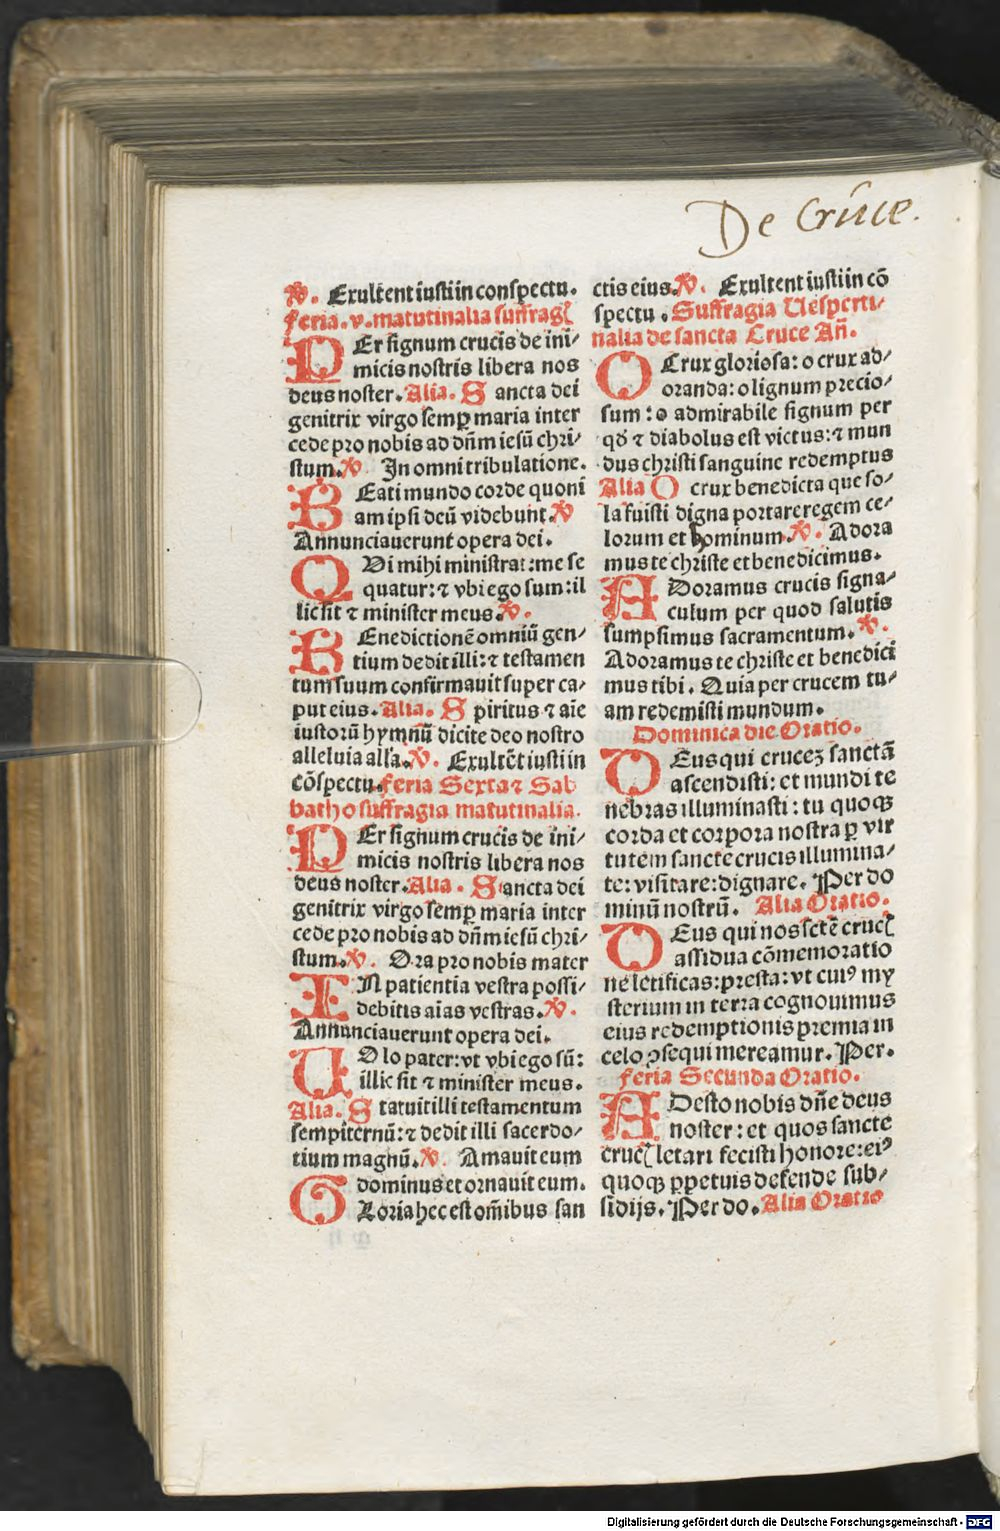 De Crûce.
℣. Exultent iusti in conspectu.
feria. v. matutinalia suffragꝭ
PEr signum crucis de ini⸗
micis nostris libera nos
deus noster. Alia. Sancta dei
genitrix virgo semꝑ maria inter
cede pro nobis ad dñm iesũ chri⸗
stum. ℣. In omni tribulatione.
BEati mundo corde quoni
am ipsi deũ videbunt. ℣
Annunciauerunt opera dei.
QVi mihi ministrat: me se
quatur: ⁊ vbi ego sum: il
lic sit ⁊ minister meus. ℣.
BEnedictionẽ omniũ gen⸗
tium dedit illi: ⁊ testamen
tum suum confirmauit super ca⸗
put eius. Alia. Spiritus ⁊ aĩe
iustorũ hymnũ dicite deo nostro
alleluia alľa. ℣. Exultẽt iusti in
cõspectu. feria Sexta ⁊ Sab
batho suffragia matutinalia.
PEr signum crucis de ini⸗
micis nostris libera nos
deus noster. Alia. Sancta dei
genitrix virgo semꝑ maria inter
cede pro nobis ad dñm iesũ chri⸗
stum. ℣. Ora pro nobis mater
IN patientia vestra possi⸗
debitis aĩas vestras. ℣.
Annunciauerunt opera dei.
VOlo pater: vt vbi ego sũ:
illic sit ⁊ minister meus.
Alia. Statuit illi testamentum
sempiternũ: ⁊ dedit illi sacerdo⸗
tium magnũ. ℣. Amauit eum
dominus et ornauit eum.
GLoria hec est om̃ibus san
ctis eius. ℣. Exultent iusti in cõ
spectu. Suffragia Uesperti⸗
nalia de sancta Cruce Añ.
OCrux gloriosa: o crux ad⸗
oranda: o lignum precio⸗
sum: o admirabile signum per
qď ⁊ diabolus est victus: ⁊ mun
dus christi sanguine redemptus
Alia O crux benedicta que so⸗
la fuisti digna portare regem ce⸗
lorum et hominum. ℣. Adora
mus te christe et benedicimus.
ADoramus crucis signa⸗
culum per quod salutis
sumpsimus sacramentum. ℣.
Adoramus te christe et benedici
mus tibi. Quia per crucem tu⸗
am redemisti mundum.
Dominica die Oratio.
DEus qui crucez sanctã
ascendisti: et mundi te
nebras illuminasti: tu quoqꝫ
corda et corpora nostra ꝑ vir
tutem sancte crucis illumina⸗
te: visitare: dignare. Per do
minũ nostrũ. Alia Oratio.
DEus qui nos sctẽ crucꝭ
assidua cõmemoratio
ne letificas: presta: vt cuiꝰ my
sterium in terra cognouimus
eius redemptionis premia in
celo ꝯsequi mereamur. Per.
feria Secunda Oratio.
ADesto nobis dñe deus
noster: et quos sancte
crucꝭ letari fecisti honore: eiꝰ
quoqꝫ ꝑpetuis defende sub⸗
sidijs. Per do. Alia Oratio
Digitalisierung gefördert durch die Deutsche Forschungsgemeinschaft - DFG